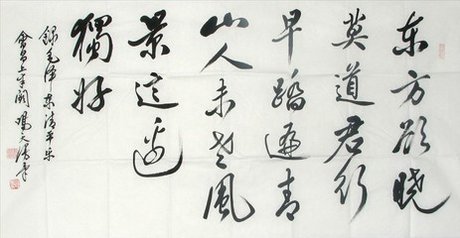 东方欲晓
莫道君行
早踏遍青
山人未老風
景這边
獨好
録毛泽东清平乐
會昌上半阕